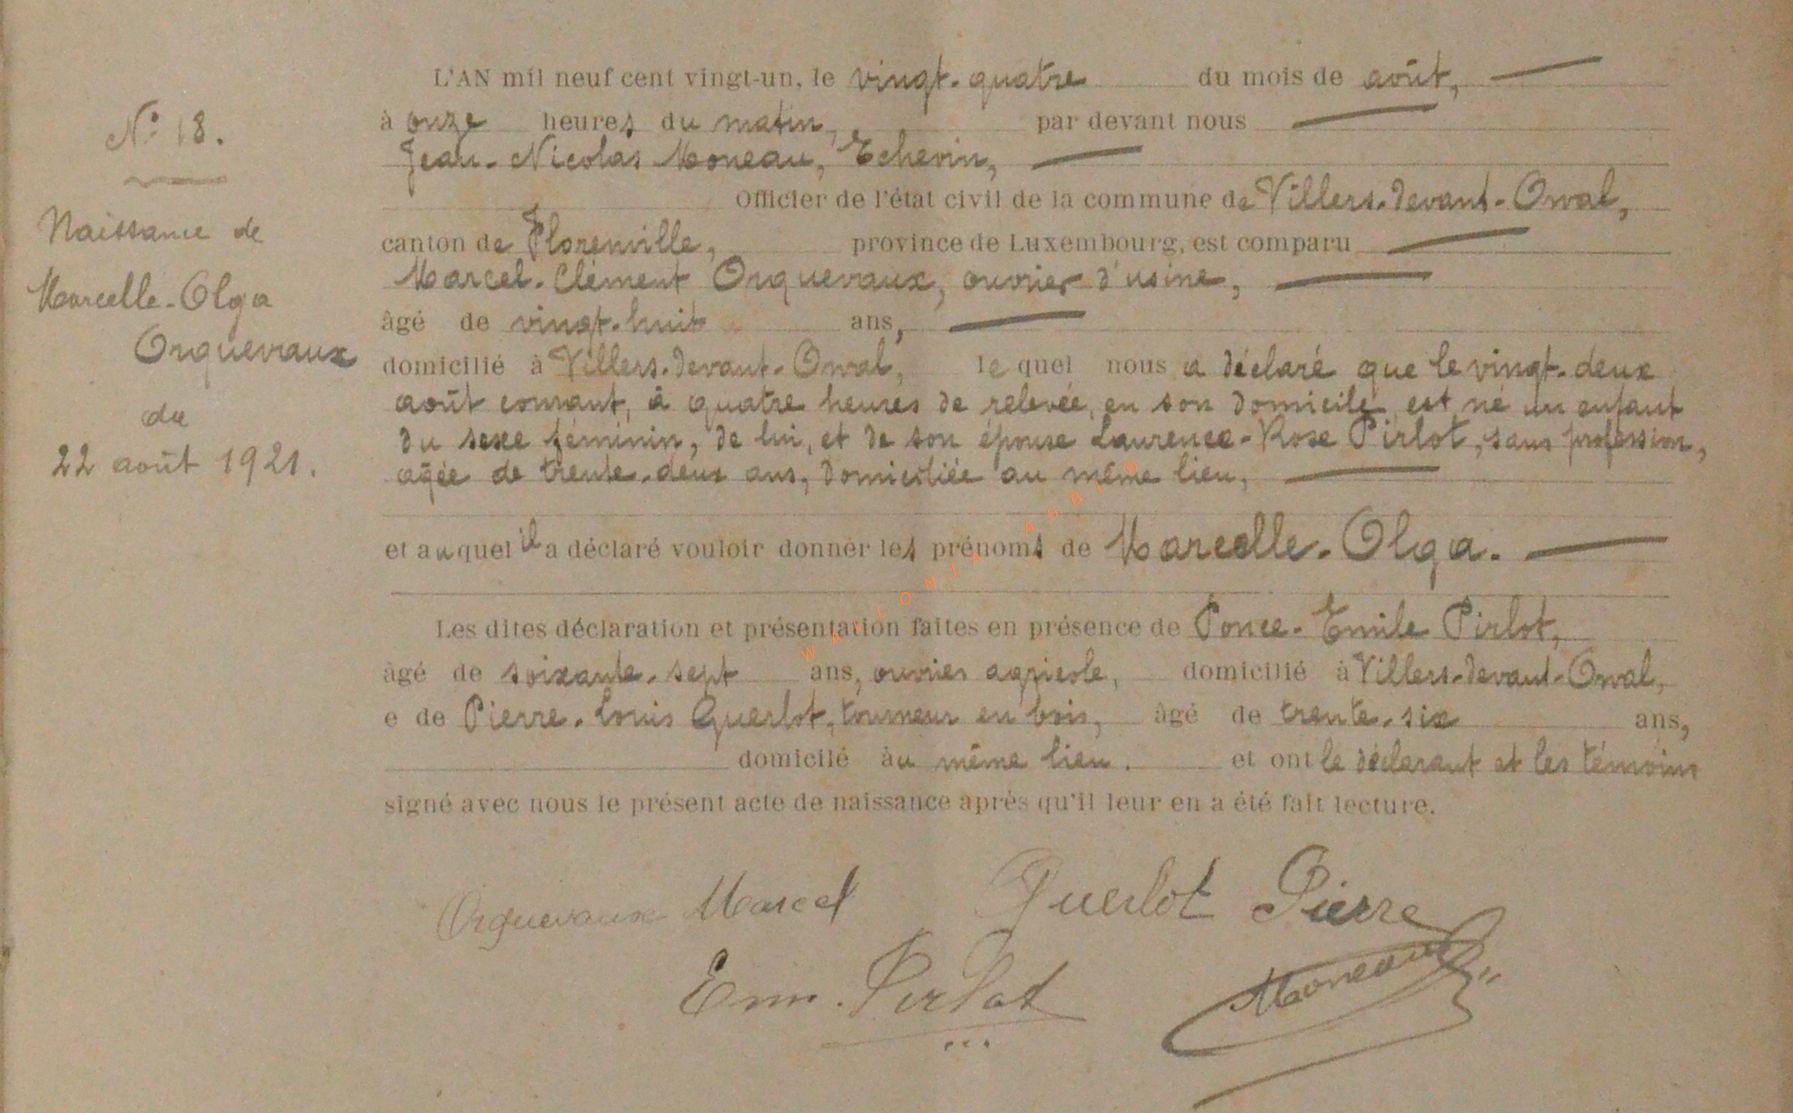 N° 18.
Naissance de
Marcelle-Olga
Orquevaux
du
22 août 1921.
L'AN mil neuf cent vingt-un, le vingt-quatre du mois de août,
à onze heures du matin, par devant nous
Jean-Nicolas Moneau, Echevin,
Officier de l'état civil de la commune de Villers-devant-Orval,
canton de Florenville, province de Luxembourg, est comparu
Marcel-Clément Orquevaux, ouvrier d'usine,
âgé de vingt-huit ans,
domicilié à Villers-devant-Orval, le quel nous a déclaré que le vingt-deux
août courant, à quatre heures de relevée, en son domicile, est né un enfant
du sexe féminin, de lui, et de son épouse Laurence-Rose Pirlot, sans profession,
agée de trente-deux ans, domiciliée au même lieu,
et auquel il a déclaré vouloir donner les prénoms de Marcelle-Olga.
Les dites déclaration et présentation faites en présence de Ponce-Emile Pirlot,
âgé de soixante-sept ans, ouvrier agricole, domicilié à Villers-devant-Orval,
e de Pierre-Louis Querlot, tourneur en bois, âgé de trente-six ans,
domicilé au même lieu. et ont le déclarant et les témoins
signé avec nous le présent acte de naissance après qu'il leur en a été fait lecture.
Orquevaux Marcel Querlot Pierre
Em. Pirlot Moneau
WALLONIA ASBL